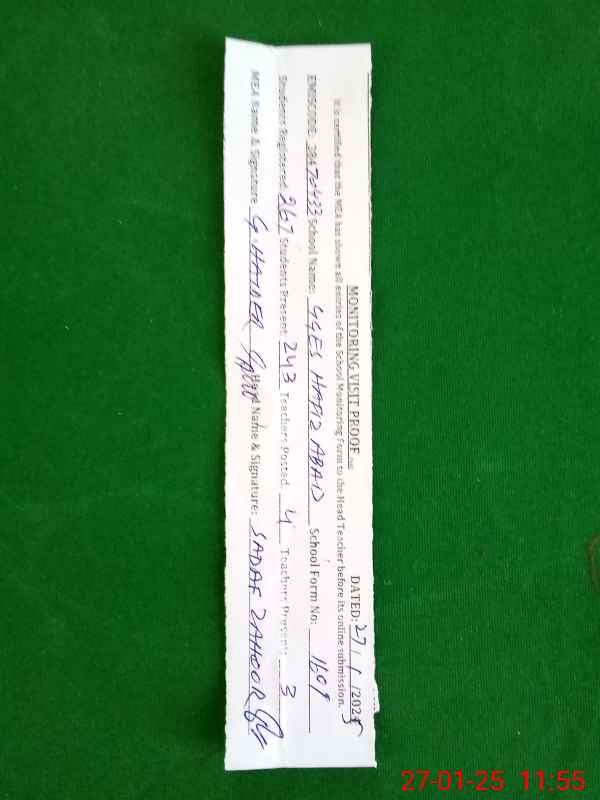 MONITORING VISIT PROOF DATED: 27/1/2025
It is certified that the MEA has shown all entries of the School Monitoring Form to the Head Teacher before its online submission.
EMISCODE: 38470433 School Name: GGES HAFIZ ABAD School Form No: 1609
Students Registered: 267 Students Present: 243 Teachers Posted: 4 Teachers Present: 3
MEA Name & Signature G. HAIDER Head Name & Signature: SADAF ZAHOOR
27-01-25 11:55